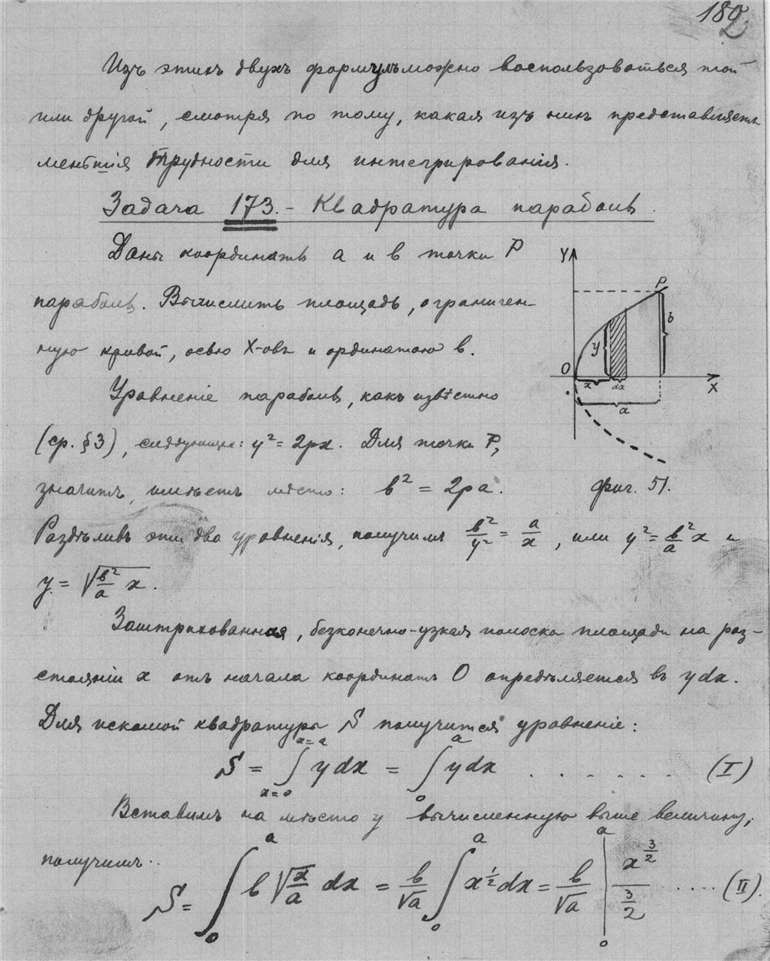 180.
Изъ этихъ двухъ формулъ можно воспользоваться той
или другой, смотря по тому, какая изъ нихъ представляетъ
меньшія трудности для интегрированія.
Задача 173. - Квадратура параболы.
Даны координаты a и b точки P
параболы. Вычислить площадь, ограничен-
ную кривой, осью X-овъ и ординатою b.
Уравненіе параболы, какъ извѣстно
(ср. §3), следующее: y² = 2px. Для точки P,
значитъ, имѣетъ мѣсто: b² = 2pa.
Y
P
b
y
O
x
dx
X
a
фиг. 51.
Раздѣливъ эти два уравненія, получимъ b²/y² = a/x, или y² = b²/a x и
y = √(b²/a x).
Заштрихованная, безконечно-узкая полоска площади на раз-
стояніи x отъ начала координатъ O опредѣляется въ ydx.
Для искомой квадратуры S получится уравненіе:
S = ∫_{x=0}^{x=a} ydx = ∫_0^a ydx . . . . . . . (I)
Вставимъ на мѣсто y вычисленную выше величину,
получимъ..
S = ∫_0^a b √(x/a) dx = b/√a ∫_0^a x^{1/2} dx = b/√a |_0^a x^{3/2}/(3/2) .... (II).